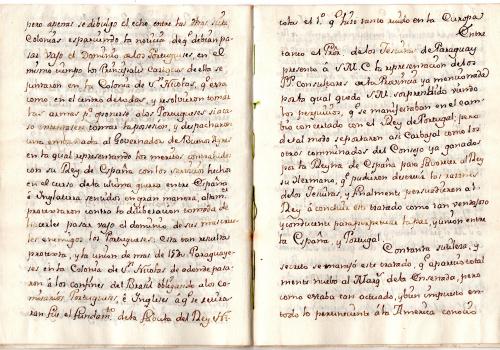 pero apenas se divulgo el echo, entre las otras siete
Colonias esparciendo la noticia de qe. debian pa-
sar vajo el Dominio a los Portugueses, en el
mismo tiempo los Principales Caciques de ellas se
juntaron en la Colonia de Sn. Nicolas, qe. era
como en el centro de todas, y resolvieron tomar
las armas pa. oponerse a los Portugueses si aca-
so intentasen tomar la posesion, y despacharon
una embaxada al Governador de Buenos Ayres
en la qual representando los meritos contrahidos
con su Rey de España con los servicios hechos
en el curso de la ultima guerra entre España
é Inglaterra sentidos en gran manera, altamte.
protestaron contra la deliberacion tomada de
hacerles pasar vajo el dominio de sus mayores
enemigos los Portugueses. Esta tan resulta
protesta, y la union de mas de 15 Paraguaye-
ses en la Colonia de Sn. Nicolas de adonde pasa-
ron á los confines del Brasil obligando a los Co-
misarios Portugueses, é Ingleses á qe. se retira-
ran fue el fundamto. de la fabula del Rey Ni-
colas el 1º. qe. hizo tanto ruido en la Europa.
Entre
tanto el Pror. de los Jesuitas de Paraguay
presentó á S.M.C. la representacion de los
PP. Consultores de la Provincia ya mencionada
por la qual quedó S.M. sorprendido viendo
los perjuicios, qe. se manifestaban en el cam-
bio concertado con el Rey de Portugal; pero
de tal modo se portaron asi Carbajal como los
otros comminados del Consejo ya ganados
por la Reyna de España para favorecer al Rey
su hermano, qe. pudieron desvanecer las razones
de los Jesuitas, y finalmente persuadieron al
Rey á concluir este tratado como tan ventajoso
y conducente para perpetuar la paz, y union entre
la España, y Portugal.
Con tanta sutileza, y
secreto se manejó este tratado, qe. aparecio total-
mente nuebo al Marqs. de la Ensenada, pero
como estaba tan actuado, y bien impuesto en
todo lo perteneciente á la America conoció